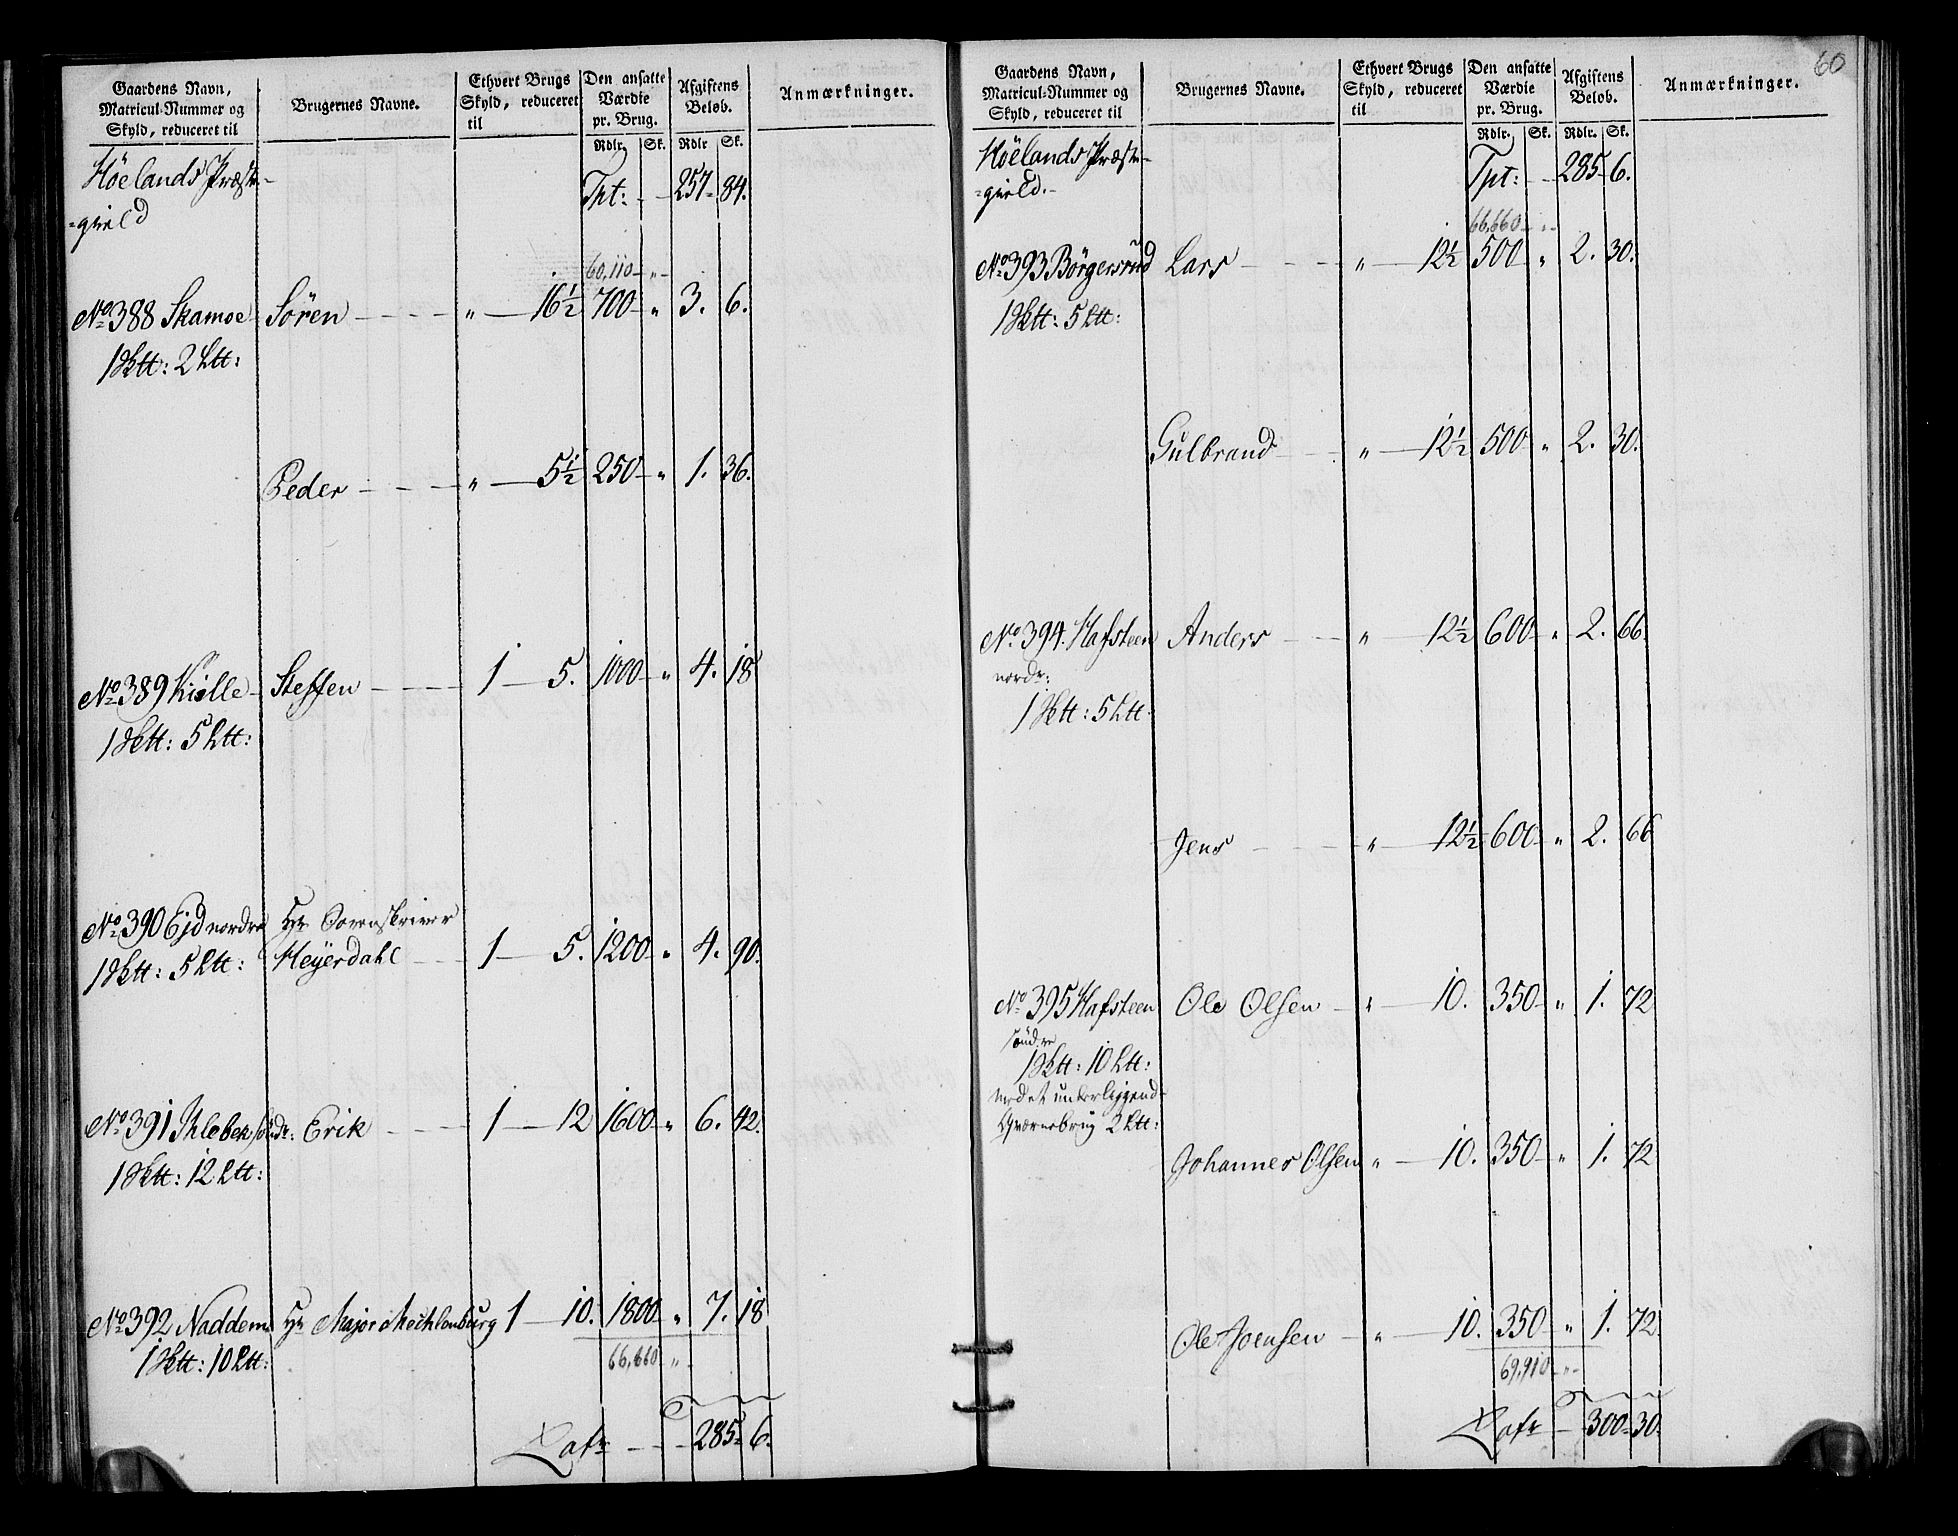 Gaardens Navn, Matricul-Nummer og Skyld, reduceret til | Brugernes Navne. | Ethvert Brugs Skyld, reduceret til | Den ansatte Værdie pr. Brug. Rdlr. Sk. | Afgiftens Beløb. Rdlr Sk. | Anmærkninger.
Höelands Præste- Tpt: - - 257 - 84.
=gield
60,110 - „ -
No 388 Skamoe Sören - - - - „ - 16½ 700 - „ 3. 6.
1 Sktt: 2 Ltt:
Peder - - - - „ - 5½ 250 - „ 1. 36.
No 389 Kiölle - Steffen - - - 1 - 5. 1000 - „ 4. 18
1 Sktt: 5 Ltt:
No 390 Ejd nordre Hr Sorenskriver
1 Sktt: 5 Ltt: Meyerdahl - - 1 - 5. 1200 - „ 4. 90.
No 391 Kleбek söndr: Erik - - - 1 - 12 1600 - „ 6. 42.
1 Sktt: 12 Ltt:
No 392 Naddem Hr Major Mechlenburg 1 - 10. 1800 - „ 7. 18
1 Sktt: 10 Ltt:
66,660 „ -
Latr - - - 285 - 6.
60
Gaardens Navn, Matricul-Nummer og Skyld, reduceret til | Brugernes Navne. | Ethvert Brugs Skyld, reduceret til | Den ansatte Værdie pr. Brug. Rdlr. Sk. | Afgiftens Beløb. Rdlr. Sk. | Anmærkninger.
Höelands Præste- Tpt: - - 285 - 6.
=gield. -
66,660 - „ -
No 393 Börgersrud Lars - - - „ - 12½ 500 „ 2. 30.
1 Sktt: 5 Ltt:
Gulbrand - - - „ - 12½ 500 „ 2. 30.
No 394. Hafsteen Anders - - - „ - 12½ 600 - „ 2. 66.
nordr:
1 Sktt: 5 Ltt:
Jens - - - „ - 12½ 600 - „ 2. 66
No 395 Hafsteen Ole Olsen - „ - 10. 350 - „ 1. 72
söndre
1 Sktt: 10 Ltt:
med et underliggende
Qværnebrug 2 Ltt:
Johannes Olsen „ - 10. 350 - „ 1. 72
Ole Joensen - „ - 10. 350 - „ 1. 72
69,910 - „ -
Latr - 300 - 30.